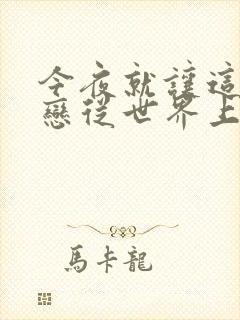 今夜就讓這
戀從世界上
馬卡龍